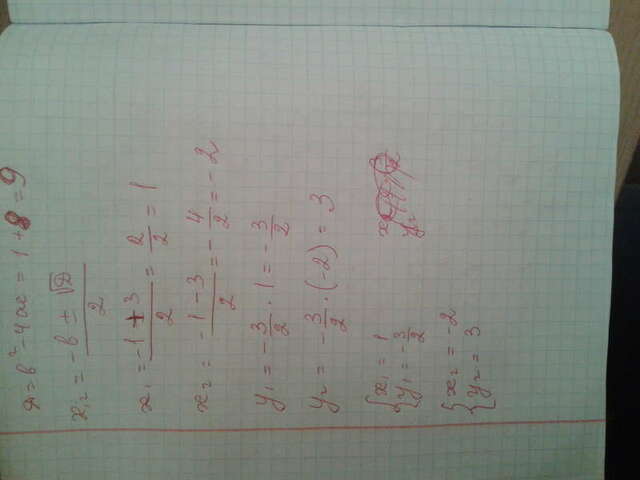 D = b² - 4ac = 1 + 8 = 9
x₁,₂ = (-b ± √D) / 2
x₁ = (-1 + 3) / 2 = 2/2 = 1
x₂ = (-1 - 3) / 2 = -4/2 = -2
y₁ = -3/2 · 1 = -3/2
y₂ = -3/2 · (-2) = 3
{ x₁ = 1
{ y₁ = -3/2
{ x₂ = -2
{ y₂ = 3